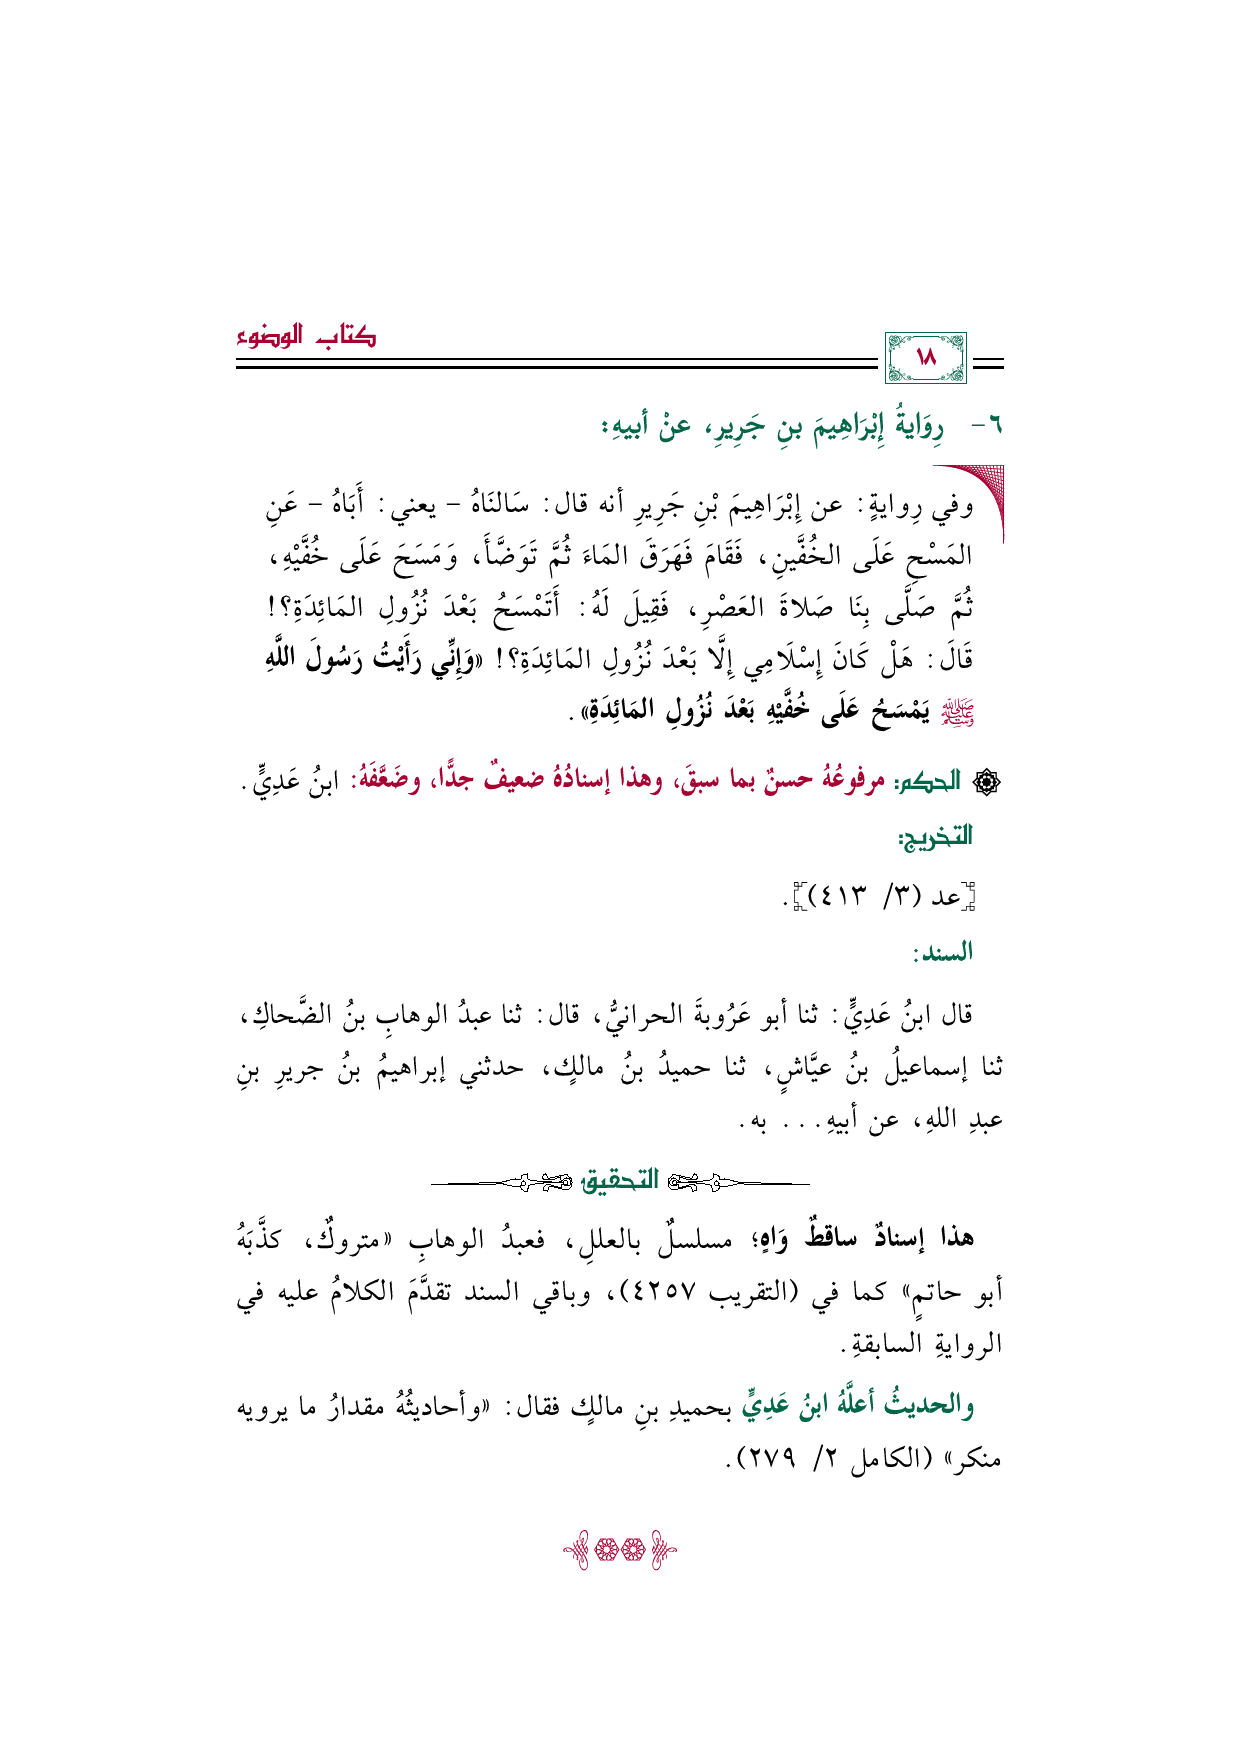 كتاب الوضوء
١٨
٦- رِوَايةُ إِبْرَاهِيمَ بنِ جَرِيرِ، عنْ أبيهِ:
وفي رِوايةٍ: عن إِبْرَاهِيمَ بْنِ جَرِيرِ أنه قال: سَالنَاهُ - يعني: أَبَاهُ - عَنِ
المَسْحِ عَلَى الخُفَّينِ، فَقَامَ فَهَرَقَ المَاءَ ثُمَّ تَوَضَّأَ، وَمَسَحَ عَلَى خُفَّيْهِ،
ثُمَّ صَلَّى بِنَا صَلاةَ العَصْرِ، فَقِيلَ لَهُ: أَتَمْسَحُ بَعْدَ نُزُولِ المَائِدَةِ؟!
قَالَ: هَلْ كَانَ إِسْلَامِي إِلَّا بَعْدَ نُزُولِ المَائِدَةِ؟! «وَإِنِّي رَأَيْتُ رَسُولَ اللَّهِ
ﷺ يَمْسَحُ عَلَى خُفَّيْهِ بَعْدَ نُزُولِ المَائِدَةِ».
الحكم: مرفوعُهُ حسنٌ بما سبقَ، وهذا إسنادُهُ ضعيفٌ جدًّا، وضَعَّفَهُ: ابنُ عَدِيٍّ.
التخريج:
[عد (٣/ ٤١٣)].
السند:
قال ابنُ عَدِيٍّ: ثنا أبو عَرُوبةَ الحرانيُّ، قال: ثنا عبدُ الوهابِ بنُ الضَّحاكِ،
ثنا إسماعيلُ بنُ عيَّاشٍ، ثنا حميدُ بنُ مالكٍ، حدثني إبراهيمُ بنُ جريرِ بنِ
عبدِ اللهِ، عن أبيهِ... به.
التحقيق
هذا إسنادٌ ساقطٌ وَاهٍ؛ مسلسلٌ بالعللِ، فعبدُ الوهابِ «متروكٌ، كذَّبَهُ
أبو حاتمٍ» كما في (التقريب ٤٢٥٧)، وباقي السند تقدَّمَ الكلامُ عليه في
الروايةِ السابقةِ.
والحديثُ أعلَّهُ ابنُ عَدِيٍّ بحميدِ بنِ مالكٍ فقال: «وأحاديثُهُ مقدارُ ما يرويه
منكر» (الكامل ٢/ ٢٧٩).